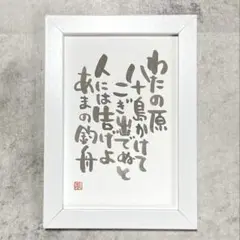 わたの原
八十島かけて
こぎ出でぬと
人には告げよ
あまの釣舟